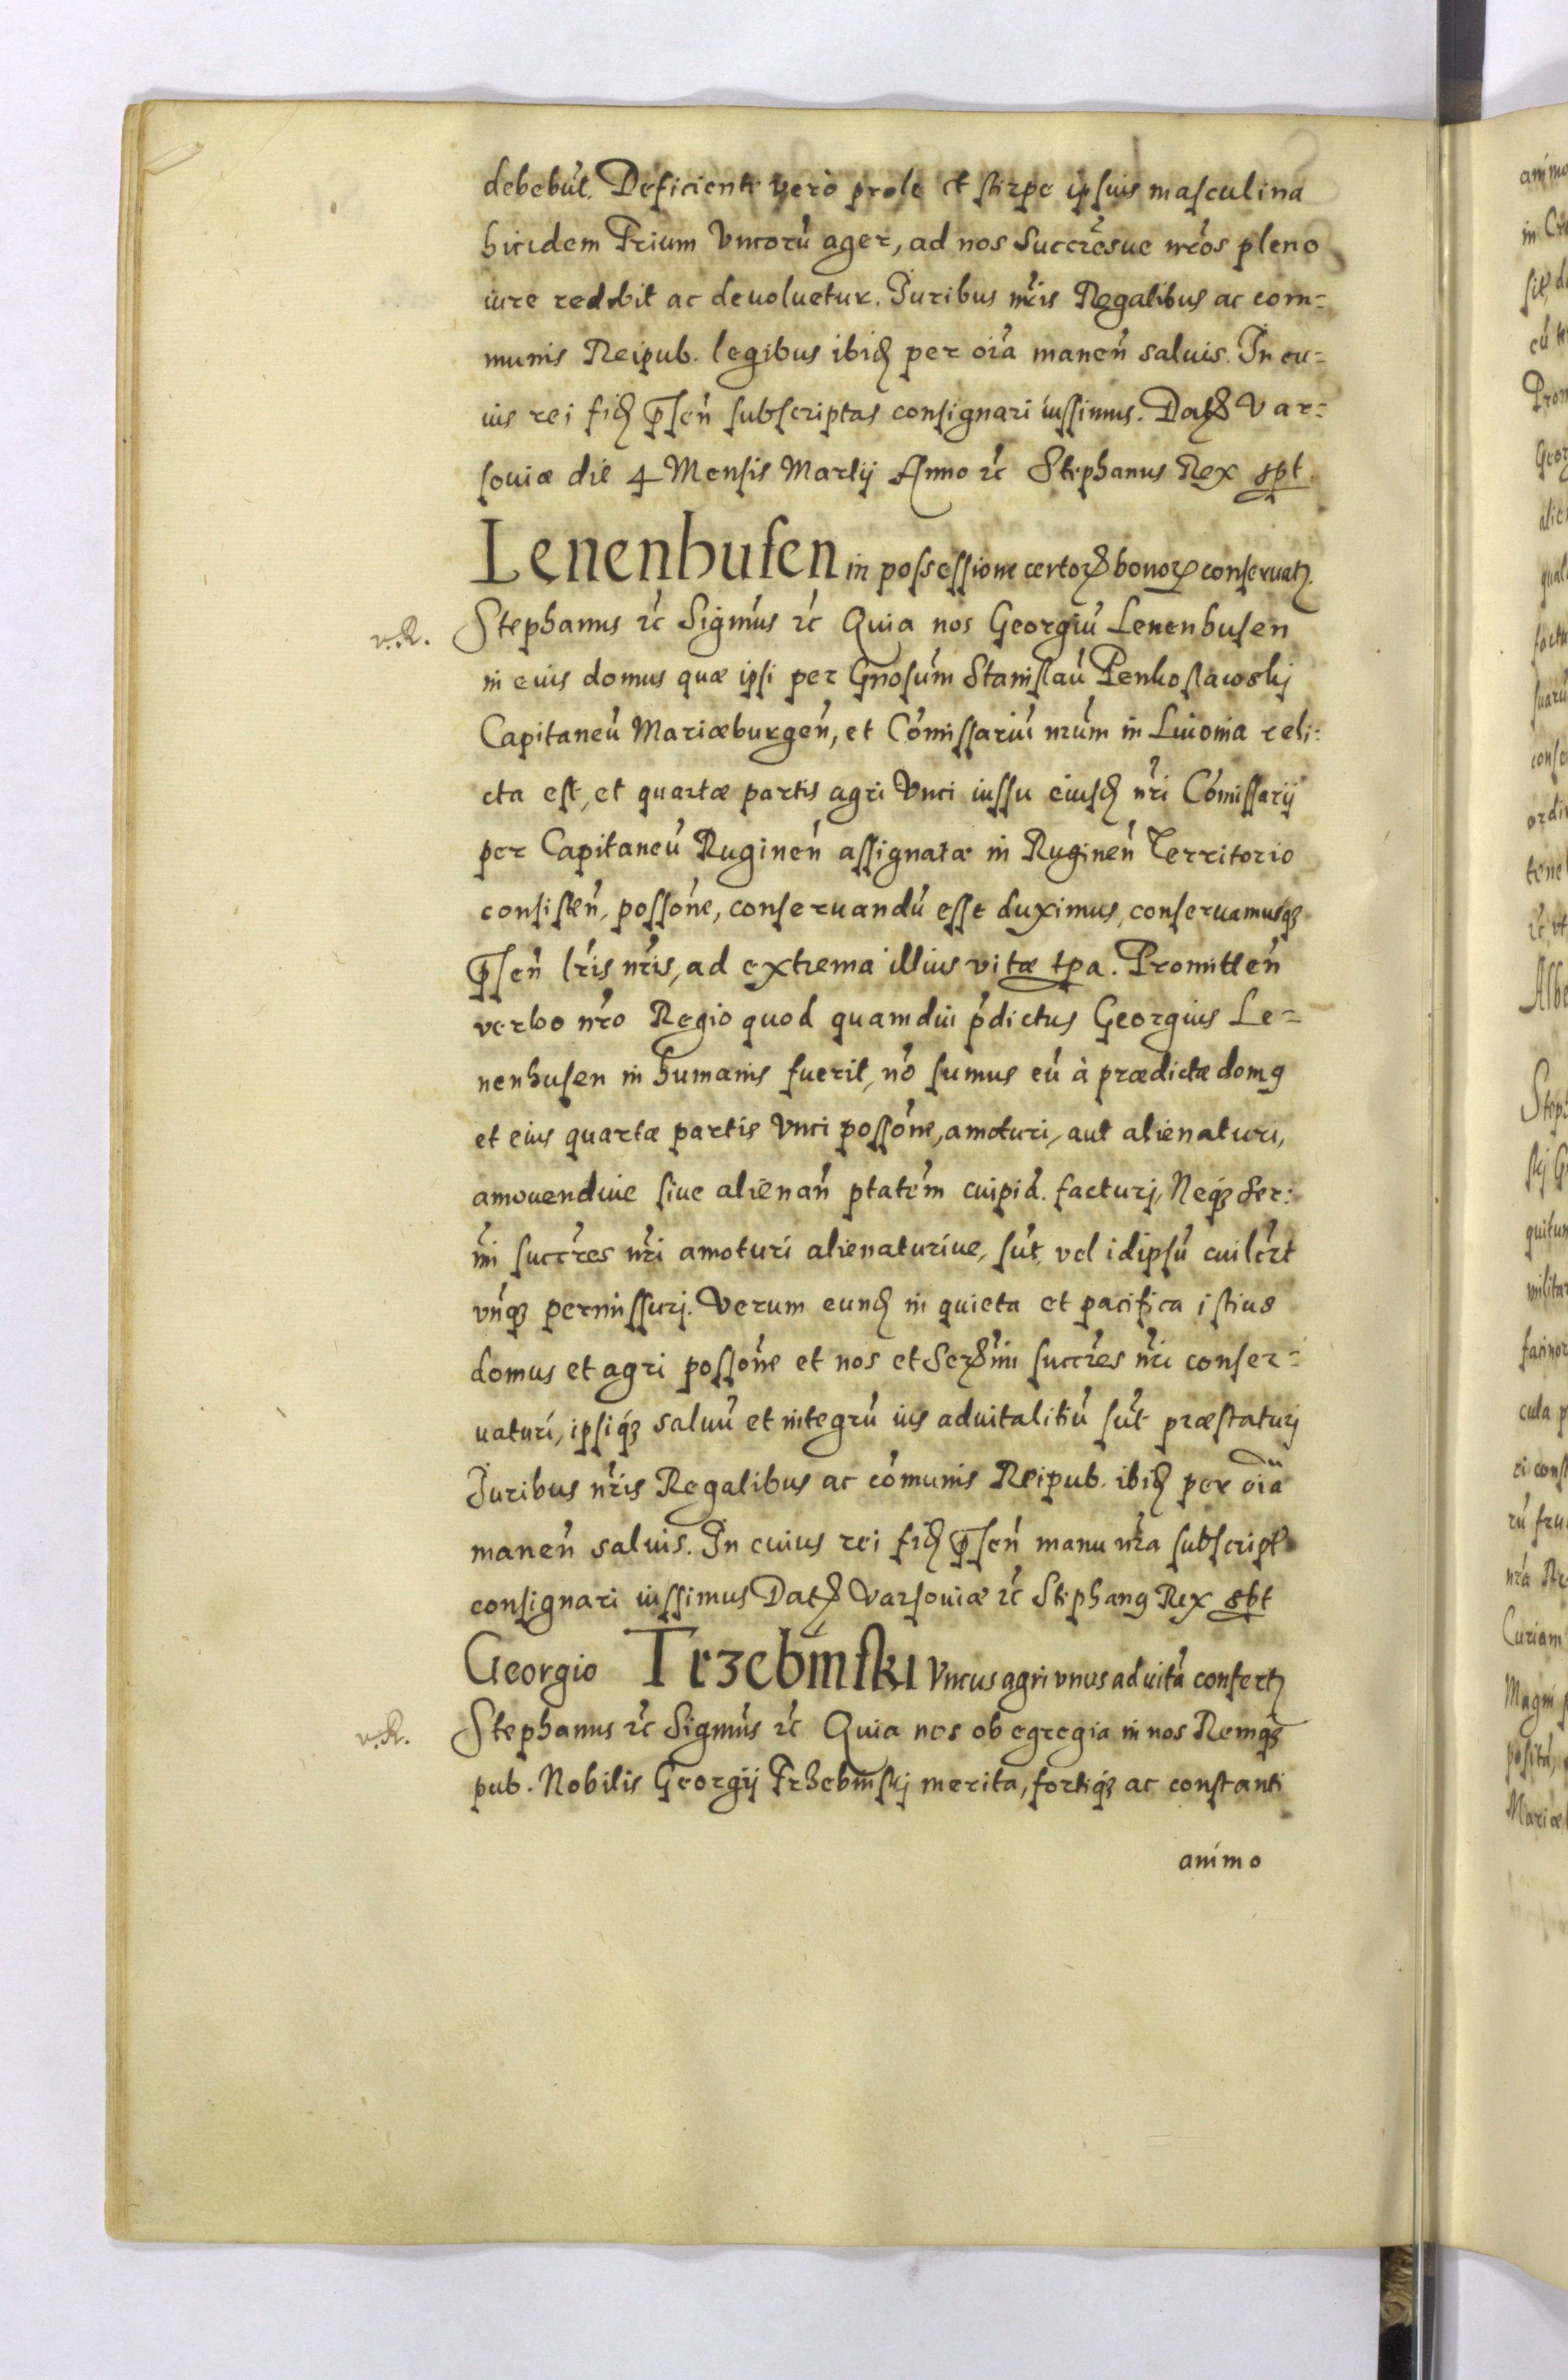 debebūt. Deficiente verò prole et stirpe ipsuis masculina
hicidem Trium Vncorū ager, ad nos Succrēsue nrōs pleno
iure redibit ac deuoluetur. Juribus nrīs Regalibus ac com=
munis Reipub. legibus ibid per oīa manen̄ saluis. In cu=
ius rei fid pn̄sen̄ subscriptas consignari iussimus. Dat Var=
souiæ die 4 Mensis Martij Anno rc̄ Stephanus Rex spt
Lenenhusen in possessione certor bonor conseruat
v.R.
Stephanus rc̄ Sigmūs rc̄ Quia nos Georgiū Lenenhusen
in eius domus quæ ipsi per Gnōsum Stanislaū Penkoslawskj
Capitaneū Mariæburgen̄, et Cōmissariū nrūm in Liuonia reli=
cta est, et quartæ partis agri Vnci iussu eiusd nrī Cōmissarij
per Capitaneū Ruginen̄ assignatæ in Ruginen̄ Territorio
consisten̄, possōne, conseruandū esse duximus, conseruamusq;
pn̄sen̄ lrīs nrīs, ad extrema illius vitæ tpa. Promitten̄
verbo nrō Regio quod quamdiu pdictus Georgius Le=
nenhusen in humanis fuerit, nō sumus eū à prædictæ domq
et eius quartæ partis Vnci possōne, amoturi, aut alienaturi,
amouendiue siue alienan̄ ptatēm cuipiā. facturj, Neq; Ser=
mī succrēs nrī amoturi alienaturiue, sūt, vel idipsū cuilcr̄t
vnq; permissurj. Verum eund in quieta et pacifica istius
domus et agri possōne et nos et Sermī succrēs nrī conser=
uaturi, ipsiq; saluū et integrū ius aduitalitiū sūt præstaturj
Juribus nrīs Regalibus ac cōmunis Reipub. ibid per oīa
manen̄ saluis. In cuius rei fid pn̄sen̄ manu nrā subscript
consignari iussimus Dat Varsouiæ rc̄ Stephanq Rex spt
Georgio Trzebinski Vncus agri vnus ad vitā confert
v.R.
Stephanus rc̄ Sigmūs rc̄ Quia nos ob egregia in nos Remq;
pub. Nobilis Georgij Trzebinskj merita, fortiq; ac constanti
animo